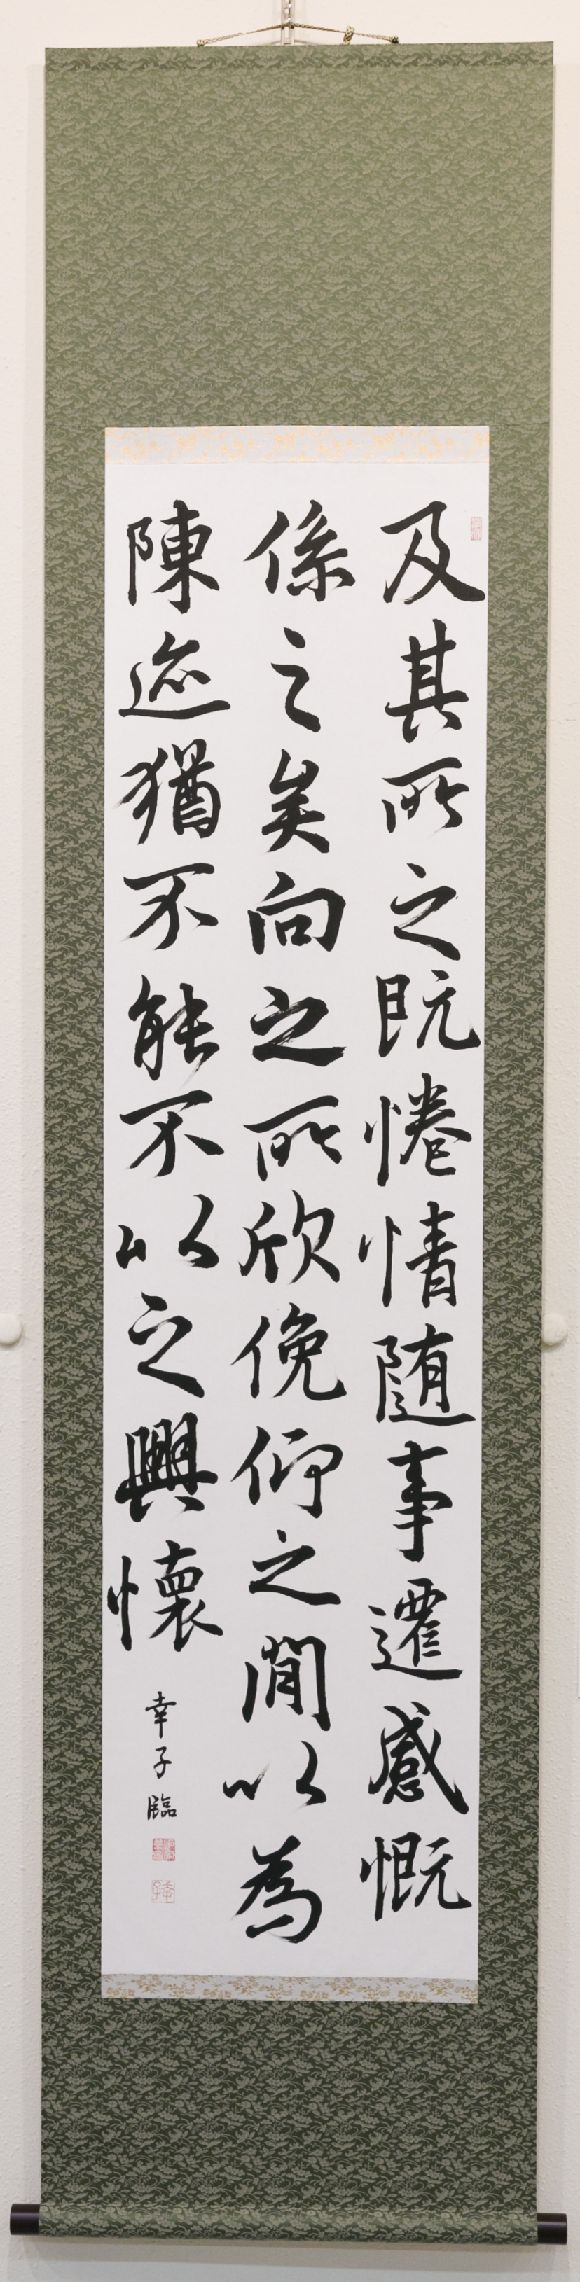 及其所之既惓情随事遷感慨
係之矣向之所欣俛仰之閒以為
陳迹猶不能不以之興懷
幸子臨